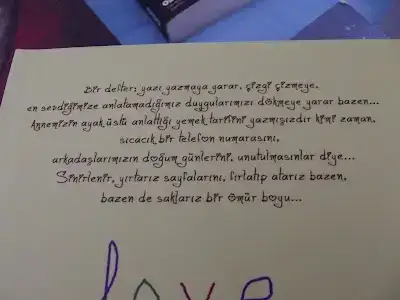 Bir defter; yazı yazmaya yarar, çizgi çizmeye,
en sevdiğimize anlatamadığımız duygularımızı dökmeye yarar bazen...
Annemizin ayak üstü anlattığı yemek tarifini yazmışızdır kimi zaman,
sıcacık bir telefon numarasını,
arkadaşlarımızın doğum günlerini, unutulmasınlar diye...
Sinirlenir, yırtarız sayfalarını, fırlatıp atarız bazen,
bazen de saklarız bir ömür boyu...
love